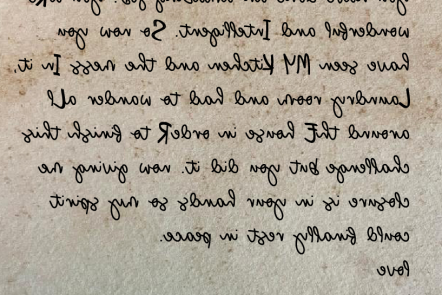 wonderful and InteLligent. So now you
have seen MY Kitchen and the mess In it,
Laundry room and had to wander aLl
around thE house in ordeR to finish this
challenge but you did it. now giving me
closure is in your hands so my spirit
could finally rest in peace.
love